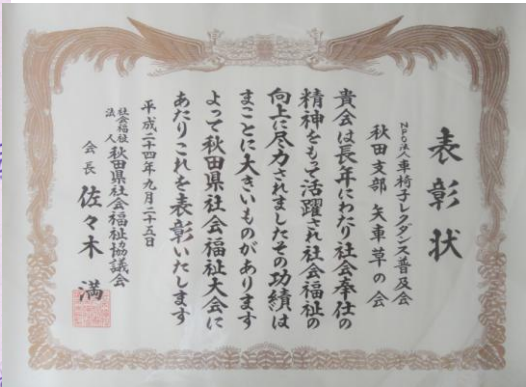 表彰状
NPO法人車椅子レクダンス普及会
秋田支部 矢車草の会
貴会は長年にわたり社会奉仕の
精神をもって活躍され社会福祉の
向上に尽力されましたその功績は
まことに大きいものがあります
よって秋田県社会福祉大会に
あたりこれを表彰いたします
平成二十四年九月二十五日
社会福祉法人 秋田県社会福祉協議会
会長 佐々木 満